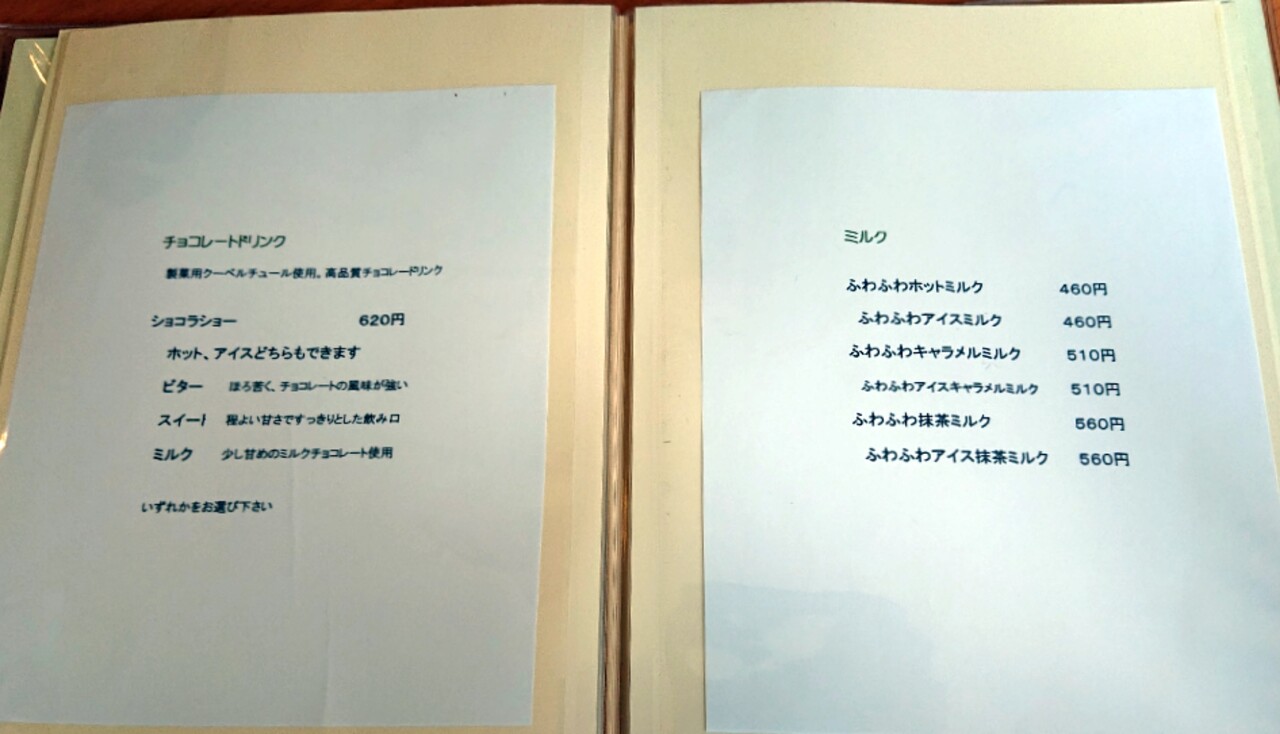 チョコレートドリンク
製菓用クーベルチュール使用。高品質チョコレードリンク
ショコラショー 620円
ホット、アイスどちらもできます
ビター ほろ苦く、チョコレートの風味が強い
スイート 程よい甘さですっきりとした飲み口
ミルク 少し甘めのミルクチョコレート使用
いずれかをお選び下さい
ミルク
ふわふわホットミルク 460円
ふわふわアイスミルク 460円
ふわふわキャラメルミルク 510円
ふわふわアイスキャラメルミルク 510円
ふわふわ抹茶ミルク 560円
ふわふわアイス抹茶ミルク 560円